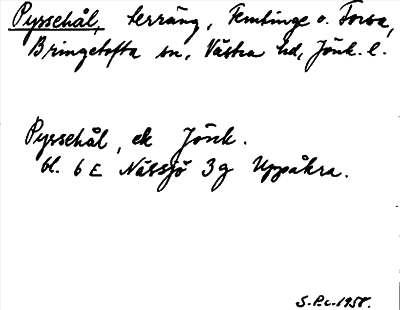 Pyssehål, terräng, Femtinge o. Torsa,
Bringetofta sn, Västra hd, Jönk. l.
Pyssehål, ek Jönk.
bl. 6 E Nässjö 3g Uppåkra.
S.P.c. 1958.